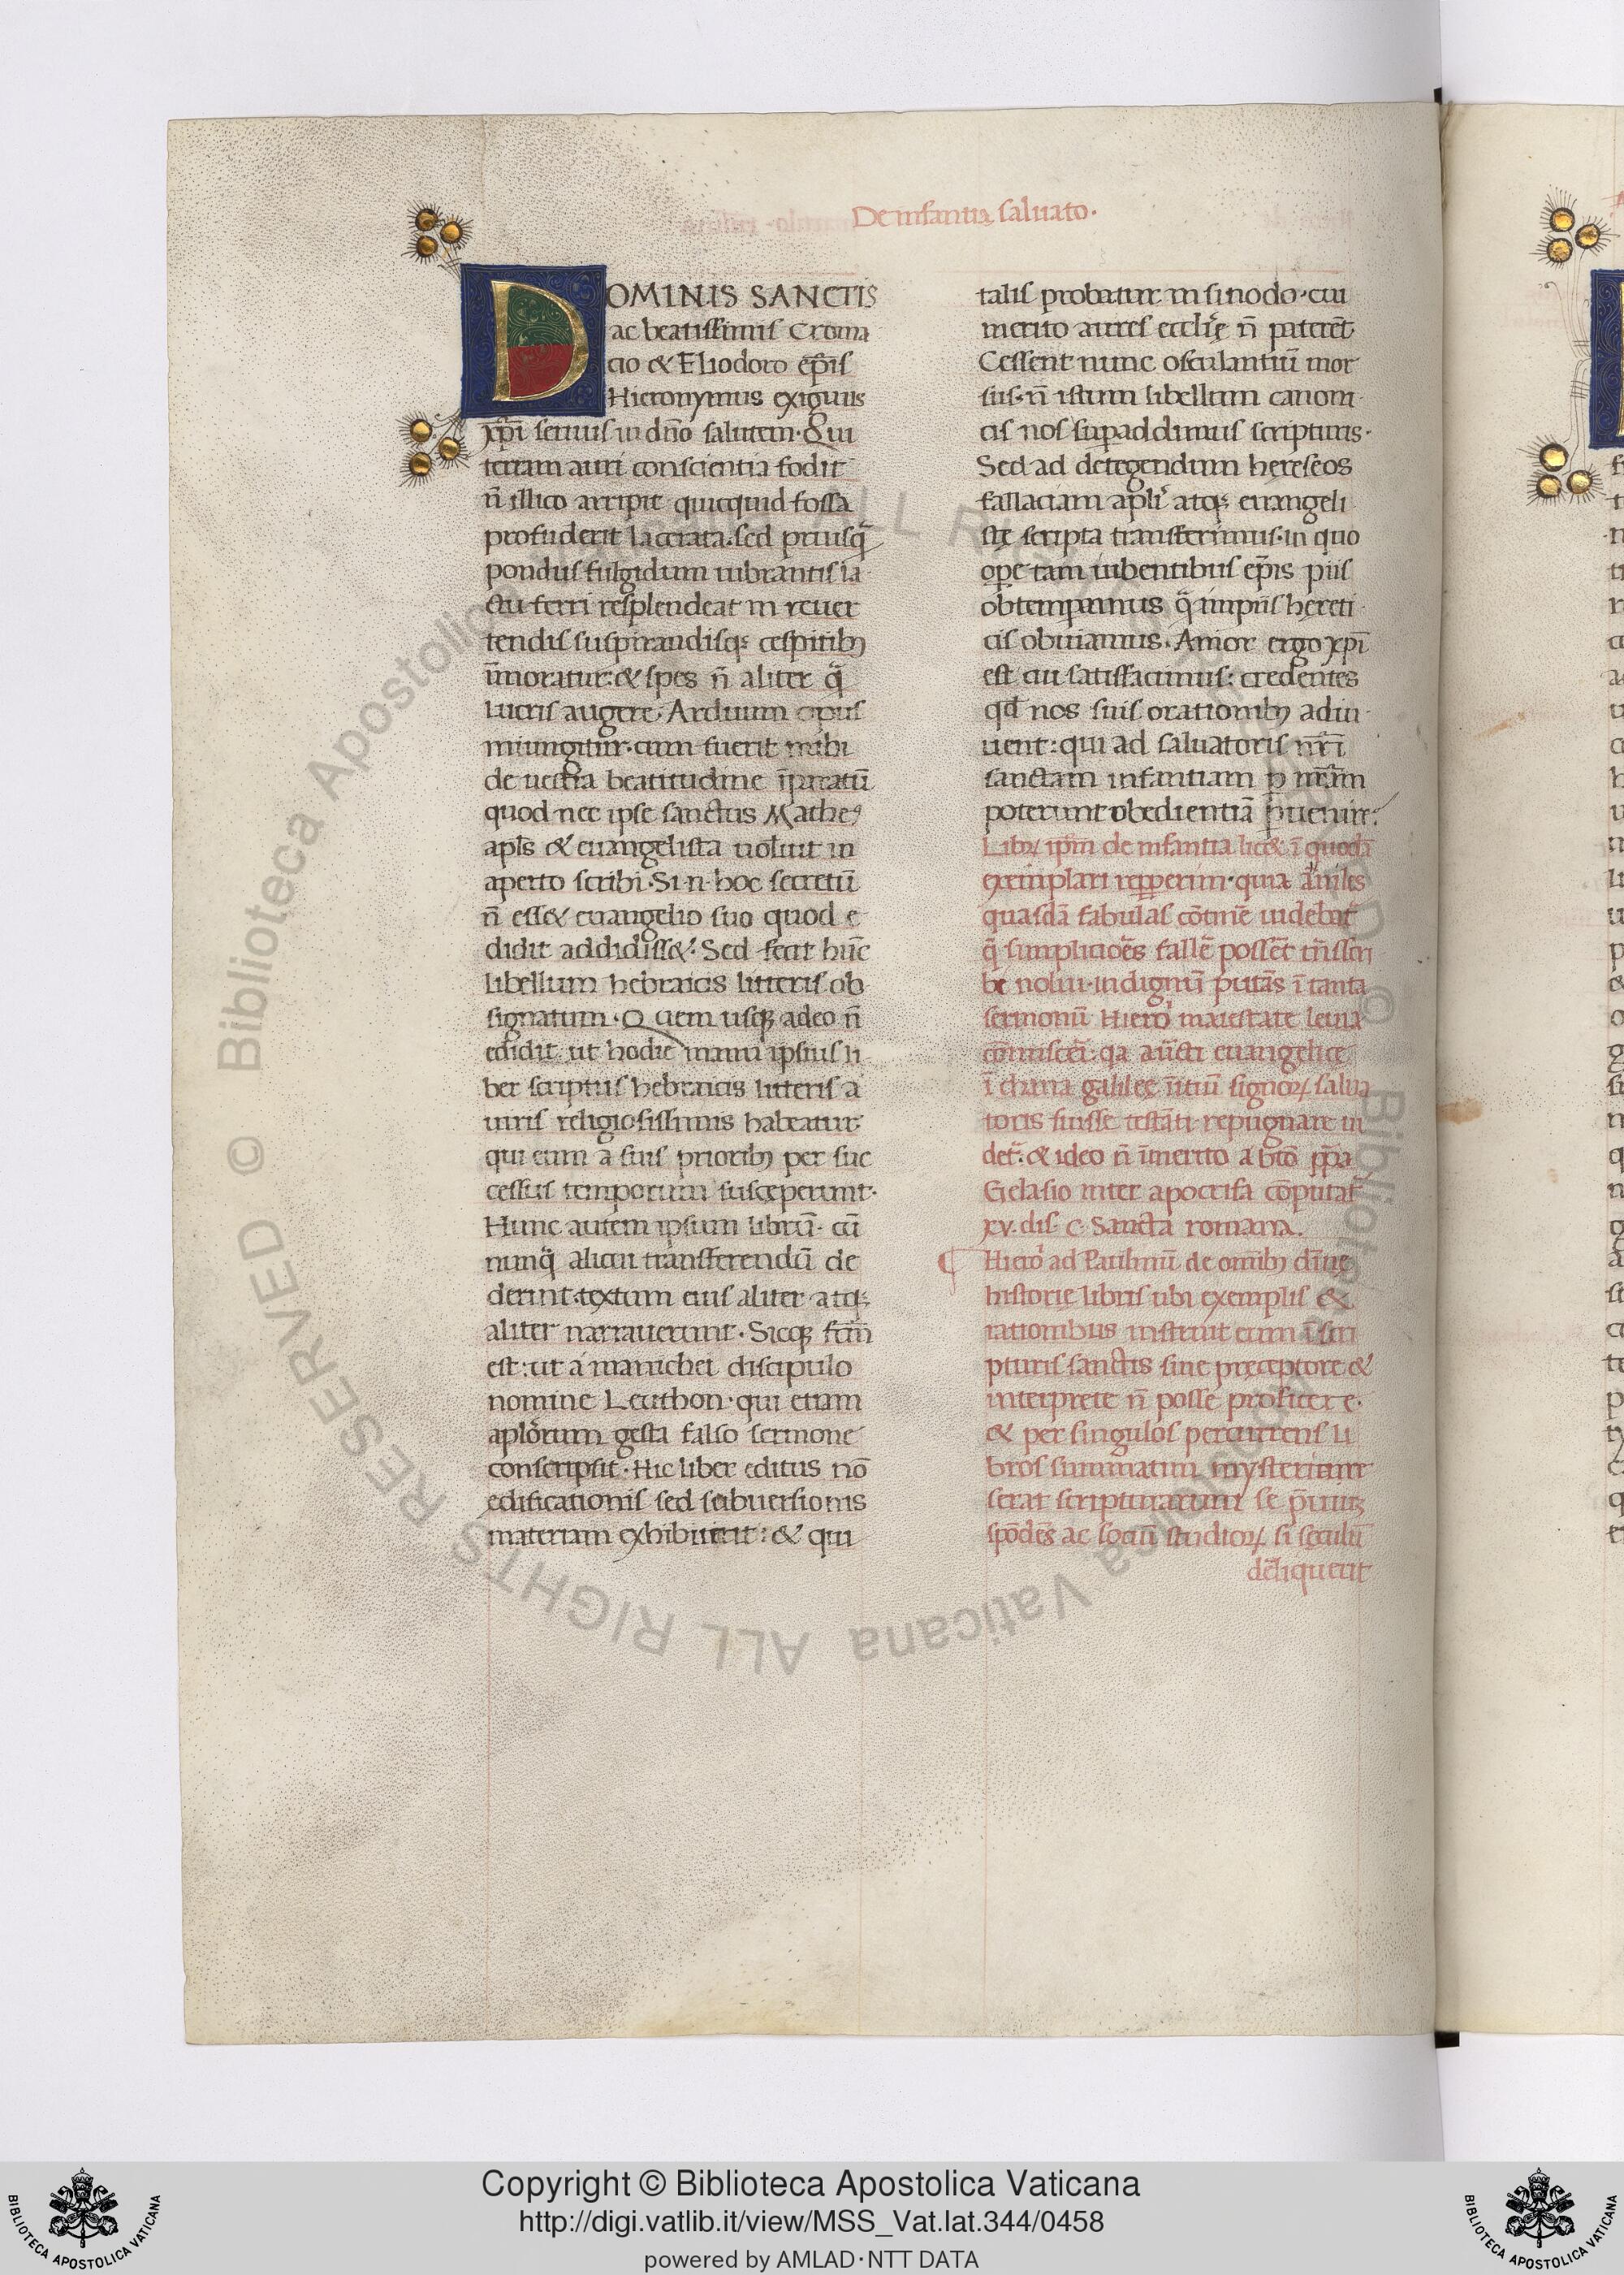 De infantia saluato.
DOMINIS SANCTIS
ac beatissimis Croma
cio & Eliodoro ep̄is
Hieronymus exiguus
xp̄i seruus in dn̄o salutem. Qui
terram auri conscientia fodit
n̄ illico arripit quicquid fossa
profuderit lacerata. sed priusq̄
pondus fulgidum uibrantis ia
ctu ferri resplendeat in reuer
tendis suspirandisq; cespitib;
īmoratur: & spes n̄ aliter q̄
lucris augere. Arduum opus
iniungitur. cum fuerit mihi
de uestra beatitudine īp̱ratū
quod nec ipse sanctus Mathe9
apl̄s & euangelista uoluit in
aperto scribi. Si n hoc secretū
n̄ ess& euangelio suo quod e
didit addidiss&. Sed fecit hūc
libellum hebraicis litteris ob
signatum. Quem usq; adeo n̄
edidit: ut hodie manu ipsius li
ber scriptus hebraicis litteris a
uiris religiosissimis habeatur
qui eum a suis priorib; per suc
cessus temporum susceperunt.
Hunc autem ipsum librū. cū
nunq̄ alicui transferendū de
derint. textum eius aliter atq;
aliter narrauerunt. Sicq; fctm̄
est: ut a manichei discipulo
nomine Leuthon. qui etiam
apl̓orum gesta falso sermone
conscripsit. Hic liber editus nō
edificationis sed subuersionis
materiam exhibuerit: & qui
talis probatur in sinodo. cui
merito aures eccl̓ie n̄ paterēt
Cessent nunc osculantiū mor
sus. n̄ istum libellum canoni
cis nos sup̱addimus scripturis.
Sed ad detegendum hereseos
fallaciam apl̓i atq; euangeli
stę scripta transferimus. in quo
op̱e tam iubentibus ep̄is piis
obtemp̱amus q̄ impiis hereti
cis obuiamus. Amor ergo xp̄i
est cui satisfacimus: credentes
qd̄ nos suis orationib; adiu
uent: qui ad saluatoris nr̄i
sanctam infantiam p̱ nr̄am
poterunt obedientiā p̱uenire.
Libꝝ ip̄m de infantia lic& ī quodā
exemplari repp̱erim. quia aniles
quasdā fabulas cōtine uidebat᷑
q̄ simplicioēs fallē possēt tn̄ scri
be nolui. indignū putās ī tanta
sermonū Hiero̓ maiestate leuia
cōmisceri: qa auct̄i euangelice
ī chana galilee īitiū signoꝝ salua
toris fuisse testāti repugnare ui
det᷑. & ideo n̄ īmerito a bt̄o pp̄a
Gelasio inter apocrifa cōputat᷑
xv. dis. c. Sancta romana.
¶ Hiero̓ ad Paulinū de omīb; diuīe
historie libris ubi exemplis &
rationibus instruit eum ī scri
pturis sanctis sine preceptore &
interprete n̄ posse proficere.
& per singulos percurrens li
bros summatim mysterium
serat scripturarum se p̄uius
spōdēs ac sociū studioꝝ si seculū
deliquerit
Copyright © Biblioteca Apostolica Vaticana
http://digi.vatlib.it/view/MSS_Vat.lat.344/0458
powered by AMLAD·NTT DATA
BIBLIOTECA APOSTOLICA VATICANA
BIBLIOTECA APOSTOLICA VATICANA
© Biblioteca Apostolica Vaticana ALL RIGHTS RESERVED © Biblioteca Apostolica Vaticana ALL RIGHTS RESERVED